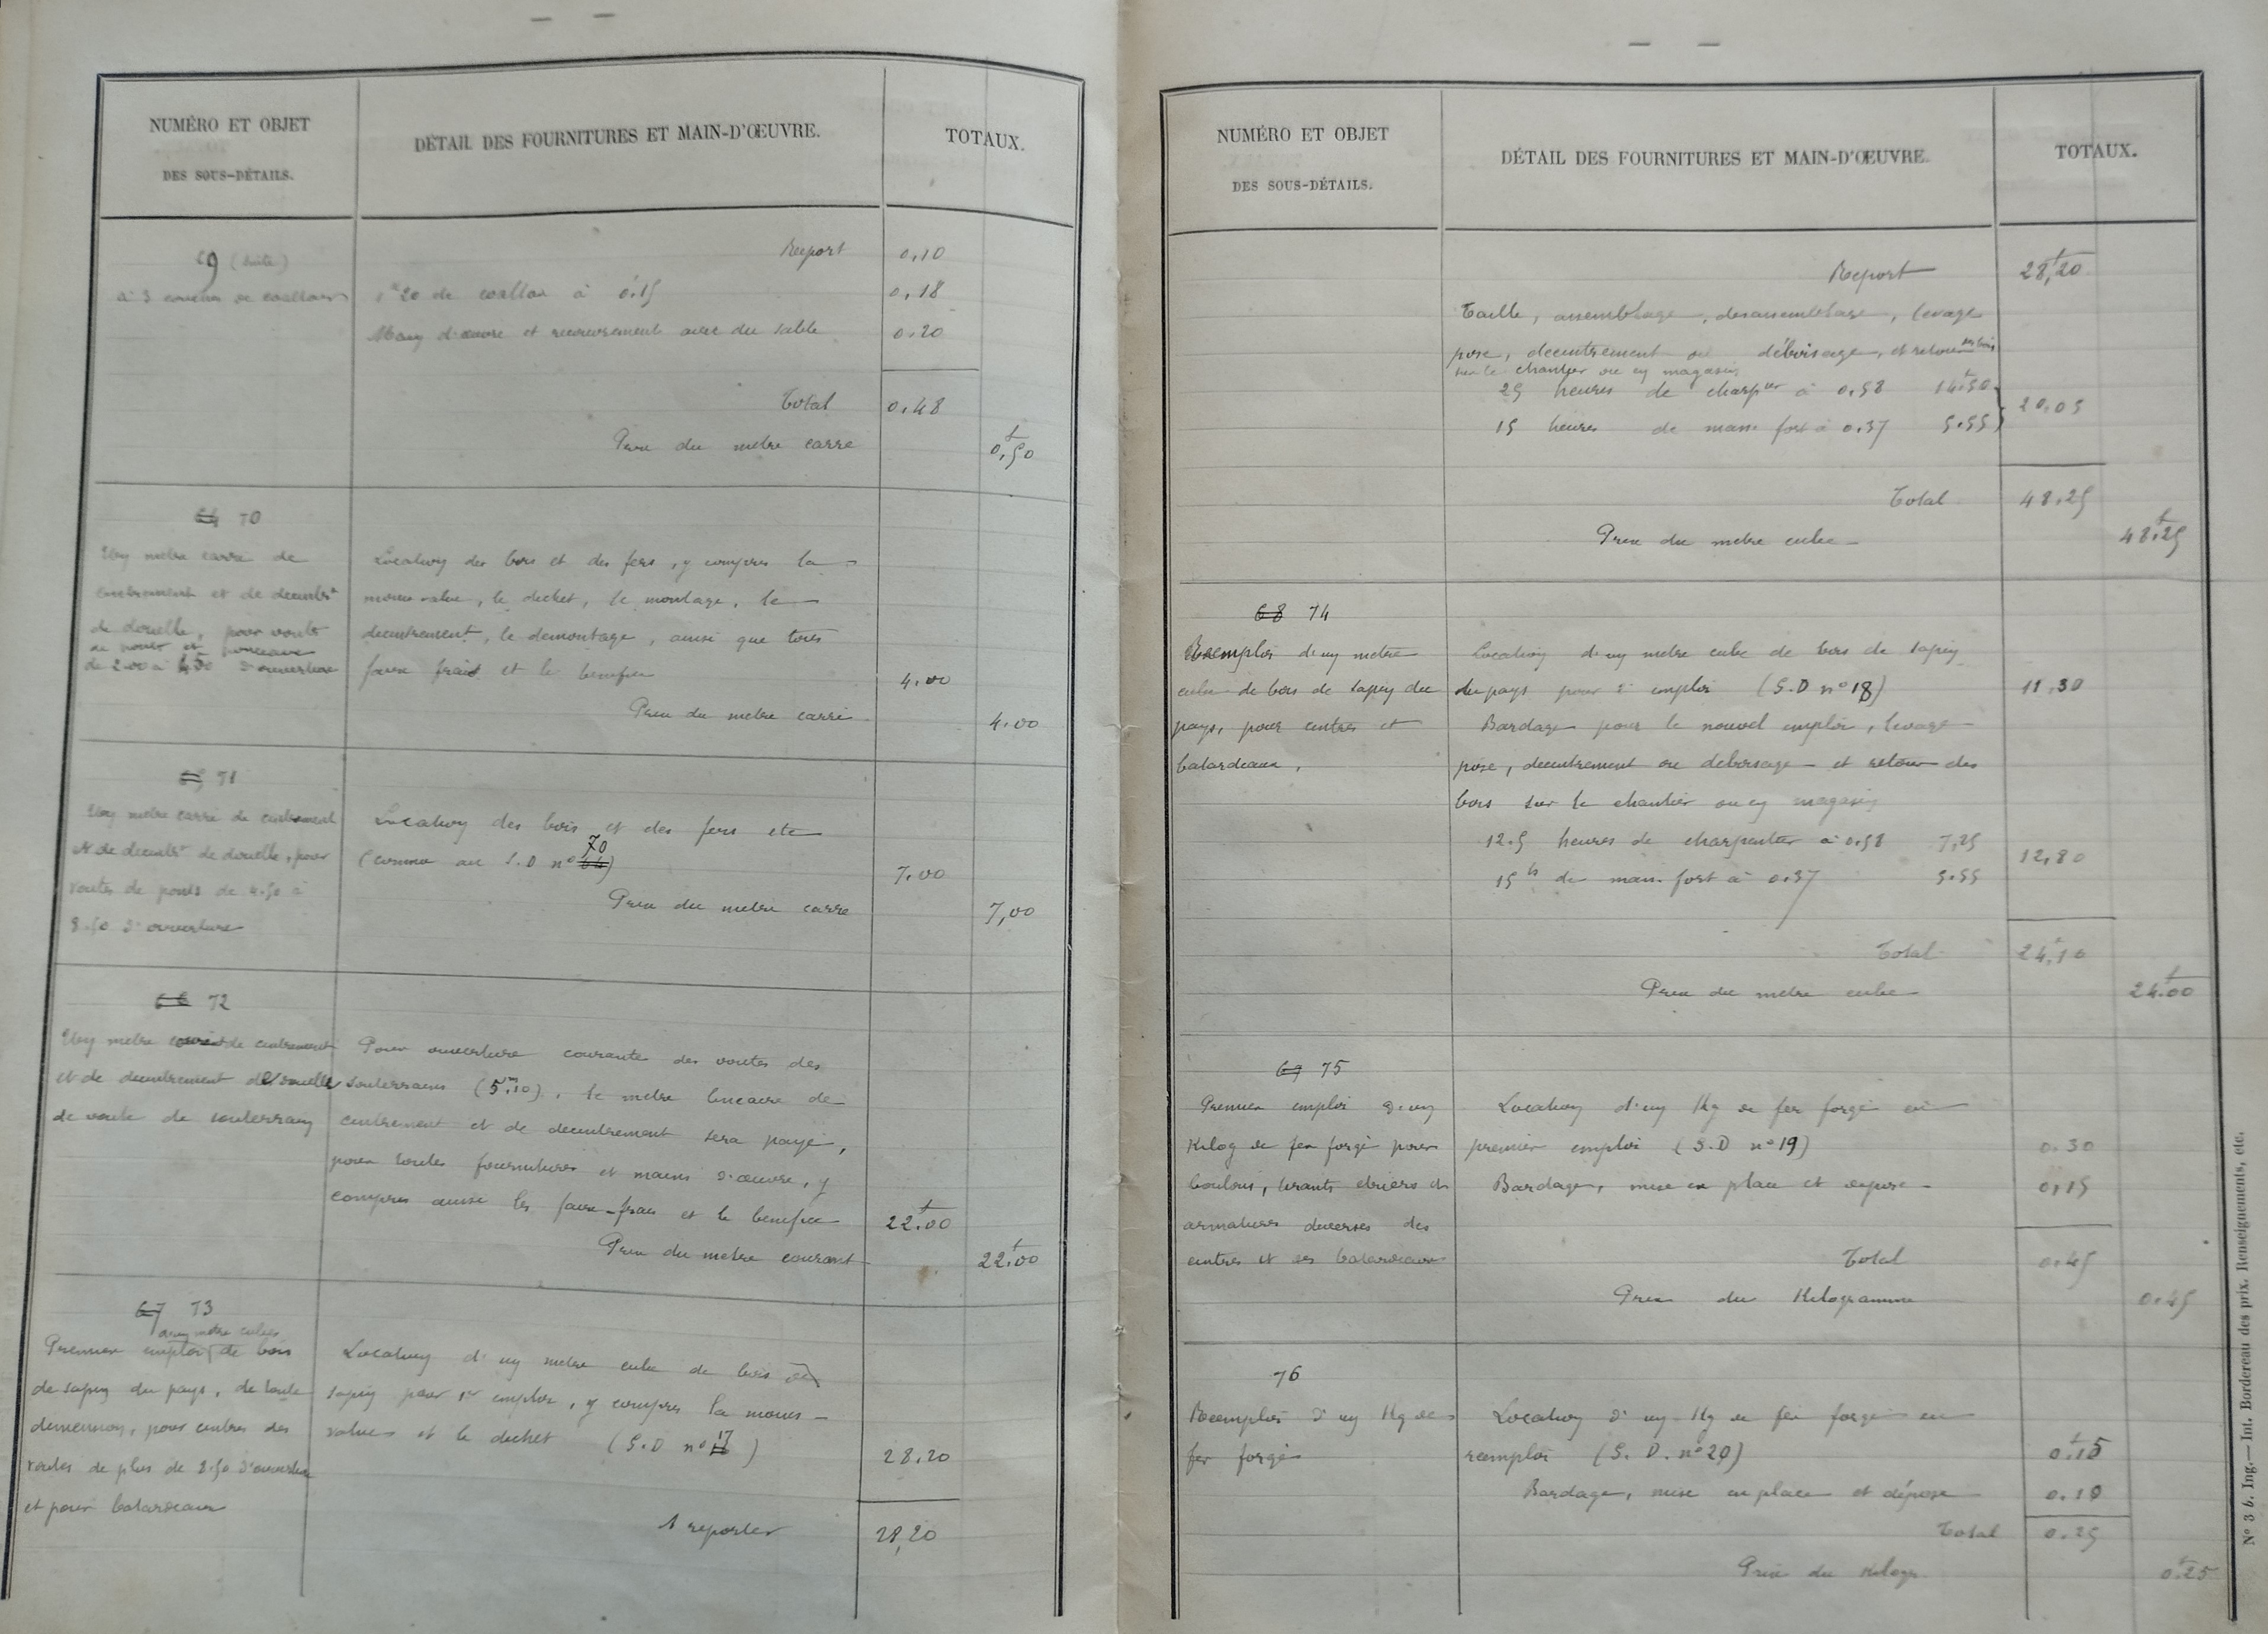 NUMÉRO ET OBJET
DES SOUS-DÉTAILS.
DÉTAIL DES FOURNITURES ET MAIN-D'ŒUVRE.
TOTAUX.
69 (suite)
Report 0,10
à 3 couches de coaltar
1k20 de coaltar à 0.15 0.18
Main d'œuvre et recouvrement avec du sable 0.20
Total 0.48
Prix du mètre carré 0f,50
64 70
Un mètre carré de
cintrement et de décintrt
de douelle, pour voûte
de ponts et ponceaux
de 2.00 à 4.50 d'ouverture
Location des bois et des fers, y compris la
moins value, le déchet, le montage, le
décintrement, le démontage, ainsi que tous
faux frais et le bénéfice 4.00
Prix du mètre carré 4.00
65 71
Un mètre carré de cintrement
et de décintrt de douelle, pour
voûtes de ponts de 4.50 à
8.50 d'ouverture
Location des bois et des fers etc
(comme au S.D n° 64 70) 7.00
Prix du mètre carré 7,00
66 72
Un mètre courant de cintrement
et de décintrement de douelle
de voûte de souterrain
Pour ouverture courante des voûtes des
souterrains (5m,10), le mètre linéaire de
cintrement et de décintrement sera payé,
pour toutes fournitures et mains d'œuvre, y
compris aussi les faux-frais et le bénéfice 22f.00
Prix du mètre courant 22f.00
67 73
d'un mètre cube
Premier emploi de bois
de sapin du pays, de toute
dimension, pour cintres des
voûtes de plus de 8.50 d'ouverture
et pour batardeaux
Location d'un mètre cube de bois de
sapin pour 1er emploi, y compris la moins
value et le déchet (S.D n° 17) 28.20
A reporter 28,20
NUMÉRO ET OBJET
DES SOUS-DÉTAILS.
DÉTAIL DES FOURNITURES ET MAIN-D'ŒUVRE.
TOTAUX.
Report 28f,20
Taille, assemblage, désassemblage, levage
pose, décintrement ou déboisage, et retour des bois
sur le chantier ou en magasin
25 heures de charpier à 0.58 14f.50
15 heures de man. fort à 0.37 5.55
20.05
Total 48.25
Prix du mètre cube 48f.25
68 74
Réemploi d'un mètre
cube de bois de sapin du
pays, pour cintres et
batardeaux.
Location d'un mètre cube de bois de sapin
du pays pour 2e emploi (S.D n° 18) 11.30
Bardage pour le nouvel emploi, levage
pose, décintrement ou déboisage et retour des
bois sur le chantier ou en magasin
12.5 heures de charpentier à 0.58 7,25
15 hs de man. fort à 0.37 5.55
12,80
Total 24f,10
Prix du mètre cube 24f.00
69 75
Premier emploi d'un
Kilog de fer forgé pour
boulons, tirants étriers et
armatures diverses des
cintres et des batardeaux
Location d'un Kg de fer forgé en
premier emploi (S.D n° 19) 0.30
Bardage, mise en place et dépose 0,15
Total 0.45
Prix du Kilogramme 0.45
76
Réemploi d'un Kg de
fer forgé
Location d'un Kg de fer forgé en
réemploi (S. D. n° 20) 0f.15
Bardage, mise en place et dépose 0.10
Total 0.25
Prix du Kilogr 0f.25
N° 3 b. Ing.— Int. Bordereau des prix. Renseignements, etc.